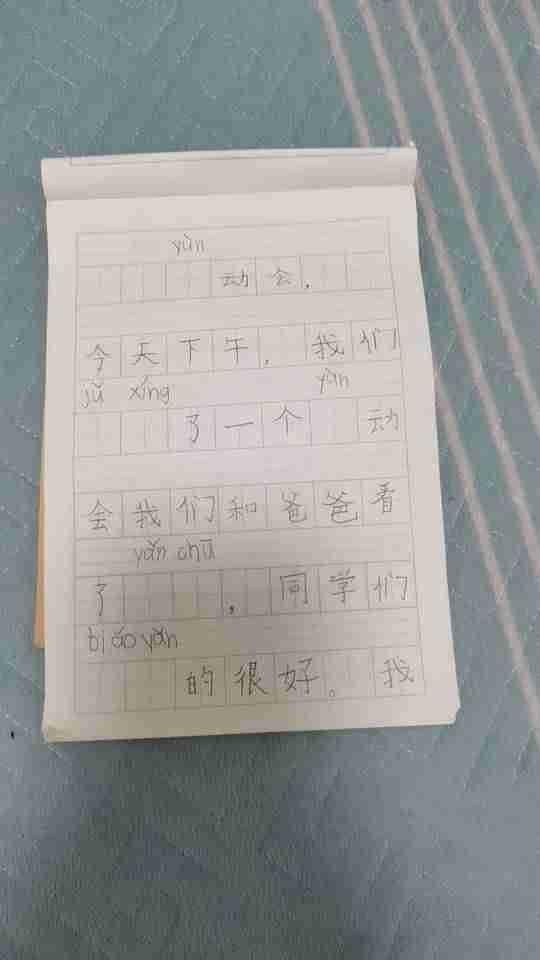 yùn
动会.
今天下午,我们
jǔ xíng yùn
了一个 动
会我们和爸爸看
yǎn chū
了 ,同学们
biǎo yǎn
的很好。我